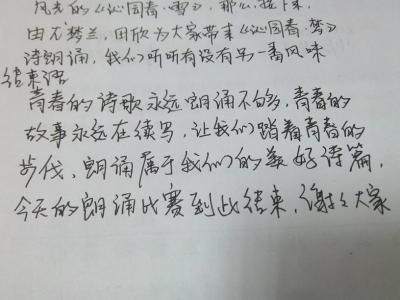 风光的《沁园春·雪》，那么，接下来，
由尤梦兰，田欣为大家带来《沁园春·梦》
诗朗诵，我们听听有没有另一番风味
结束语
青春的诗歌永远朗诵不够，青春的
故事永远在续写，让我们踏着青春的
步伐、朗诵属于我们的美好诗篇，
今天的朗诵比赛到此结束，谢谢大家